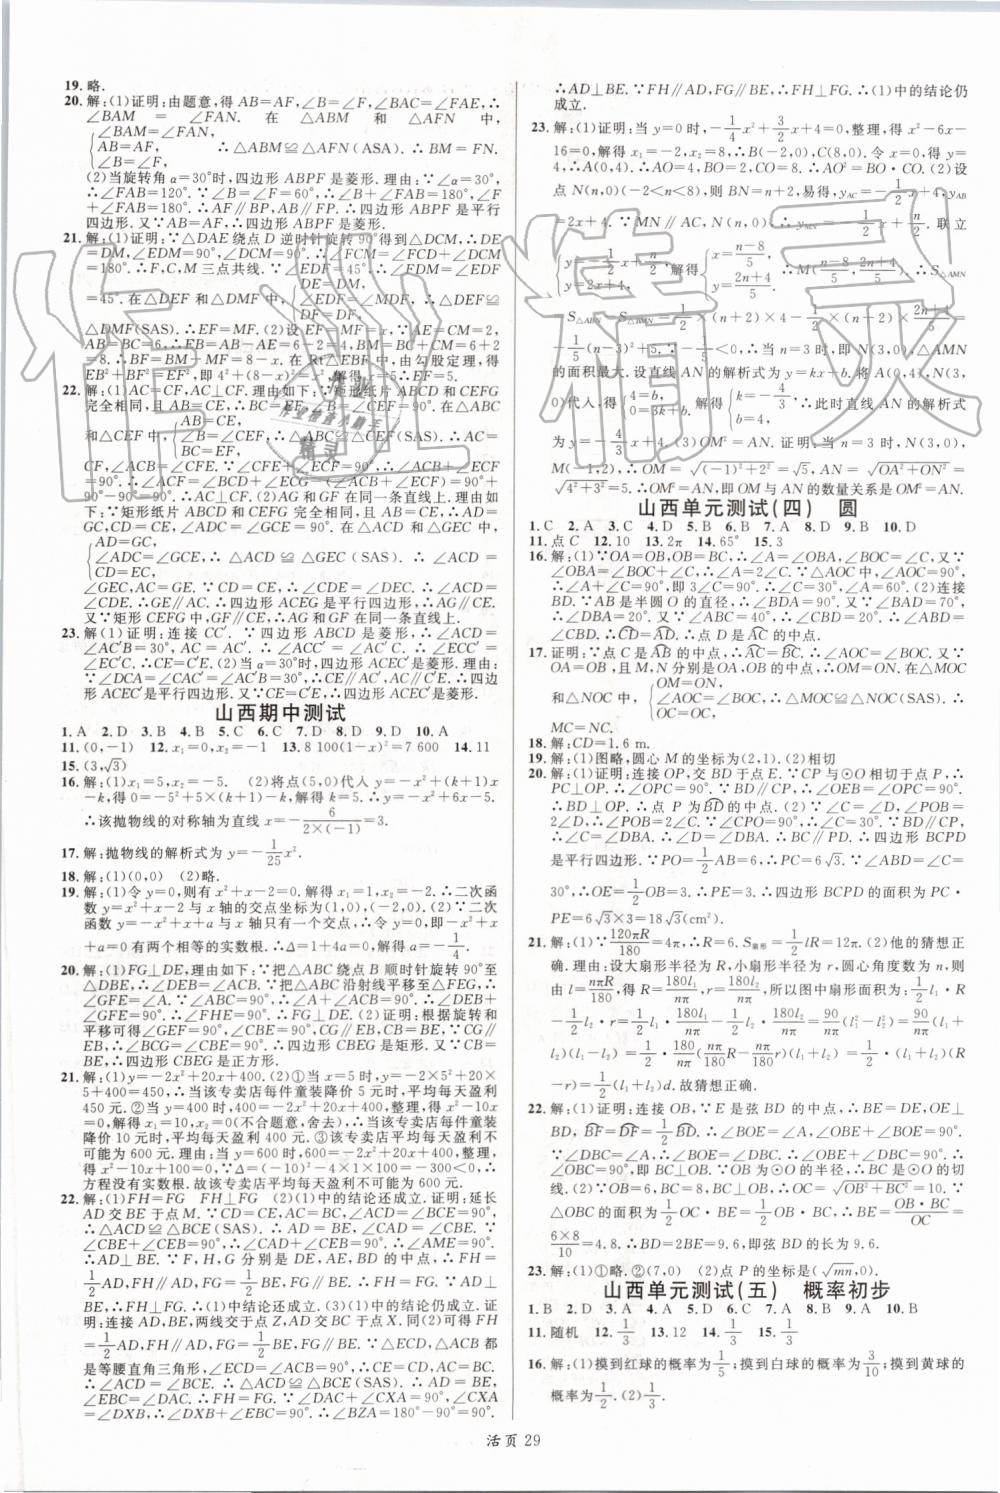 19. 略.
20. 解:(1)证明:由题意,得 AB=AF,∠B=∠F,∠BAC=∠FAE,∴
∠BAM = ∠FAN. 在 △ABM 和 △AFN 中,
∠BAM=∠FAN,
AB=AF, ∴△ABM≌△AFN(ASA). ∴BM=FN.
∠B=∠F,
(2)当旋转角 α=30°时,四边形 ABPF 是菱形. 理由:∵∠α=30°,
∴∠FAB=120°. ∵∠B=∠F=60°,∴∠B+∠FAB=180°,∠F
+∠FAB=180°. ∴AF∥BP,AB∥FP. ∴四边形 ABPF 是平行
四边形. 又∵AB=AF,∴四边形 ABPF 是菱形.
21. 解:(1)证明:∵△DAE 绕点 D 逆时针旋转 90°得到△DCM,∴DE
=DM,∠EDM=90°,∠DCM=90°. ∵∠DCF=90°,∴∠DCM+∠DCF
=180°. ∴F,C,M 三点共线.
DE=DM,
=45°. 在△DEF 和△DMF 中, ∠EDF=∠MDF, ∴△DEF≌
DF=DF,
△DMF(SAS). ∴EF=MF. (2)设 EF=MF=x. ∵AE=CM=2,
AB=BC=6,∴EB=AB-AE=6-2=4,BM=BC+CM=6+2=
8. ∴BF=BM-MF=8-x. 在 Rt△EBF 中,由勾股定理,得
EB²+BF²=EF²,即 4²+(8-x)²=x². 解得 x=5. ∴EF=5.
22. 解:(1)AC=CF,AC⊥CF. 理由如下:∵矩形纸片 ABCD 和 CEFG
完全相同,且 AB=CE,∴BC=EF,∠B=∠E=90°. 在△ABC
AB=CE,
和△CEF 中, ∠B=∠E, ∴△ABC≌△CEF(SAS). ∴AC=
BC=EF,
CF,∠ACB=∠CFE. ∵∠CFE+∠ECF=90°,∴∠ACB+∠ECF=
90°. ∴∠ACF=∠BCD+∠ECG-(∠ACB+∠ECF)=90°+
90°-90°=90°. ∴AC⊥CF. (2)AG 和 GF 在同一条直线上. 理由如
下:∵矩形纸片 ABCD 和 CEFG 完全相同,且 AB=CE,∴AD=
GC,∠ADC=∠GCE=90°. 在△ACD 和△GEC 中,
AD=GC,
∠ADC=∠GCE, ∴△ACD≌△GEC(SAS). ∴∠ACD=
CD=EC,
∠GEC,AC=GE. ∵CD=CE,∴∠CDE=∠DEC. ∴∠ACD=
∠CDE. ∴GE∥AC. ∴四边形 ACEG 是平行四边形,∴AG∥CE.
又∵矩形 CEFG 中,GF∥CE,∴AG 和 GF 在同一条直线上.
23. 解(1)证明:连接 CC′. ∵四边形 ABCD 是菱形,∴∠ACD=
∠AC′B=30°,AC=AC′. ∴∠ACC′=∠AC′C. ∴∠ECC′=
∠EC′C. ∴CE=C′E. (2)当 α=30°时,四边形 ACEC′是菱形. 理由:
∵∠DCA=∠CAC′=∠AC′B=30°,∴CE∥AC′,AC∥C′E. ∴四边
形 ACEC′是平行四边形. 又∵CE=C′E,∴四边形 ACEC′是菱形.
山西期中测试
1. A 2. D 3. B 4. B 5. C 6. C 7. D 8. D 9. D 10. A
11. (0,-1) 12. x₁=0,x₂=-1 13. 8 100(1-x)²=7 600 14. 11
15. (3,√3)
16. 解:(1)x₁=5,x₂=-5. (2)将点(5,0)代入 y=-x²+(k+1)x
-k,得 0=-5²+5×(k+1)-k. 解得 k=5. ∴y=-x²+6x-5.
∴该抛物线的对称轴为直线 x=-6/(2×(-1))=3.
17. 解:抛物线的解析式为 y=-1/25 x².
18. 解:(1)(0,0) (2)略.
19. 解:(1)令 y=0,则有 x²+x-2=0. 解得 x₁=1,x₂=-2. ∴二次
函数 y=x²+x-2 与 x 轴的交点坐标为(1,0),(-2,0). (2)∵二次
函数 y=x²+x-a 的图象与 x 轴只有一个交点,∴令 y=0,即 x²+x
-a=0 有两个相等的实数根. ∴Δ=1+4a=0,解得 a=-1/4.
20. 解:(1)FG⊥DE,理由如下:∵把△ABC 绕点 B 顺时针旋转 90°至
△DBE,∴∠DEB=∠ACB. ∵把△ABC 沿射线平移至△FEG,∴
∠GFE=∠A. ∵∠ABC=90°,∴∠A+∠ACB=90°. ∴∠DEB+
∠GFE=90°. ∴∠FHE=90°. ∴FG⊥DE. (2)证明:根据旋转和
平移可得∠GEF=90°,∠CBE=90°,CG∥EB,CB=BE. ∵CG∥
EB,∴∠BCG+∠CBE=90°. ∴四边形 CBEG 是矩形. 又∵CB
=BE,∴四边形 CBEG 是正方形.
21. 解:(1)y=-2x²+20x+400. (2)①当 x=5 时,y=-2×5²+20
×5+400=450,∴当该专卖店每件童装降价 5 元时,平均每天盈利
450 元. ②当 y=400 时,400=-2x²+20x+400,整理,得 x²-10x
=0,解得 x₁=10,x₂=0(不合题意,舍去),∴当该专卖店每件童装
降价 10 元时,平均每天盈利 400 元. ③该专卖店平均每天盈利不
可能为 600 元. 理由:当 y=600 时,600=-2x²+20x+400,整理,得
x²-10x+100=0,∵Δ=(-10)²-4×1×100=-300<0,∴
方程没有实数根. 故该专卖店平均每天盈利不可能为 600 元.
22. 解:(1)FH=FG FH⊥FG (2)(1)中的结论还成立. 证明:延长
AD 交 BE 于点 M. ∵CD=CE,AC=BC,∠ACD=∠BCE=90°,
∴△ACD≌△BCE(SAS). ∴AD=BE,∠CAD=∠CBE. ∵
∠CBE+∠CEB=90°,∴∠CAD+∠CEB=90°,∴∠AME=90°.
∴AD⊥BE. ∵F,H,G 分别是 DE,AE,BD 的中点,∴FH=
1/2 AD,FH∥AD,FG=1/2 BE,FG∥BE. ∵AD=BE,AD⊥BE,∴FH
=FG,FH⊥FG. ∴(1)中结论还成立. (3)(1)中的结论仍成立.
证明:连接 AD,BE,两线交于点 Z,AD 交 BC 于点 X. 同(2)可得 FH=
1/2 AD,FH∥AD,FG=1/2 BE,FG∥BE. ∵△ECD,△ACB 都
是等腰直角三角形,∴CE=CD,AC=BC,∠ECD=∠ACB=90°.
∴∠ACD=∠BCE. ∴△ACD≌△BCE(SAS). ∴AD=BE,
∠EBC=∠DAC. ∴FH=FG. ∵∠DAC+∠CXA=90°,∠CXA
=∠DXB,∴∠DXB+∠EBC=90°. ∴∠BZA=180°-90°=90°.
∴AD⊥BE. ∵FH∥AD,FG∥BE,∴FH⊥FG. ∴(1)中的结论仍
成立.
23. 解:(1)证明:当 y=0 时,-1/4 x²+3/2 x+4=0,整理,得 x²-6x-
16=0,解得 x₁=-2,x₂=8,∴B(-2,0),C(8,0). 令 x=0,得 y=
4,∴A(0,4). ∴AO=4,BO=2,CO=8. ∴AO²=BO·CO. (2)设
点 N(n,0)(-2<n<8),则 BN=n+2,易得,y_AC=-1/2 x+4,y_AB
=2x+4. ∵MN∥AC,N(n,0),∴y_MN=-1/2 x+n/2. 联立
y=-1/2 x+n/2, y=2x+4, 解得 x=(n-8)/5, y=(2n+4)/5. ∴M((n-8)/5,(2n+4)/5). ∴S△AMN=
S△ABN-S△BMN=1/2×(n+2)×4-1/2×(n+2)×(2n+4)/5=
-1/5(n-3)²+5. ∵-1/5<0,∴当 n=3,即 N(3,0)时,△AMN
的面积最大. 设直线 AN 的解析式为 y=kx+b. 将 A(0,4),N(3,
0)代入,得 4=b, 0=3k+b. 解得 k=-4/3, b=4. ∴此时直线 AN 的解析式
为 y=-4/3 x+4. (3)OM²=AN. 证明:当 N(3,0)时,
M(-1,2),∴OM=√((-1)²+2²)=√5,AN=√(OA²+ON²)=
√(4²+3²)=5. ∴OM²=AN. 即 OM 与 AN 的数量关系是 OM²=AN.
山西单元测试(四) 圆
1. C 2. A 3. C 4. D 5. B 6. B 7. A 8. D 9. B 10. D
11. 点 C 12. 10 13. 2π 14. 65° 15. 3
16. 解:(1)∵OA=OB,OB=BC,∴∠A=∠OBA,∠BOC=∠C,又∵
∠OBA=∠BOC+∠C,∴∠A=2∠C. ∵△AOC 是直角三角形,
∴∠A+∠C=90°,即 3∠C=90°. ∴∠C=30°,∠A=60°. (2)连接
BD. ∵AB 是半圆 O 的直径,∴∠ADB=90°. 又∵∠BAD=70°,
∴∠DBA=20°. 又∵∠ABC=40°,∴∠CBD=20°. ∴∠ABD=
∠CBD. ∴CD=AD. ∴点 D 是AC的中点.
17. 证明:∵点 C 是AB的中点,∴AC=BC. ∴∠AOC=∠BOC. ∵
OA=OB,且 M,N 分别是 OA,OB 的中点,∴OM=ON. 在△MOC
OM=ON,
和△NOC 中, ∠AOC=∠BOC, ∴△MOC≌△NOC(SAS). ∴
OC=OC,
MC=NC.
18. 解:CD=1.6 m.
19. 解:(1)图略,圆心 M 的坐标为(2,1). (2)相切
20. 解:(1)证明:连接 OP,交 BD 于点 E. ∵CP 与⊙O 相切于点 P,∴
PC⊥OP. ∴∠OPC=90°. ∵BD∥CP,∴∠OEB=∠OPC=90°.
∴BD⊥OP. ∴点 P 为BD的中点. (2)∵∠C=∠D,∠POB=
2∠D,∴∠POB=2∠C. ∵∠CPO=90°,∴∠C=30°. ∵BD∥CP,
∴∠C=∠DBA. ∴∠D=∠DBA. ∴BC∥PD. ∴四边形 BCPD
是平行四边形. ∵PO=1/2 AB=6,∴PC=6√3. ∵∠ABD=∠C=
30°,∴OE=1/2 OB=3. ∴PE=3. ∴四边形 BCPD 的面积为 PC·
PE=6√3×3=18√3(cm²).
21. 解:(1)∵120πR/180=4π,∴R=6. S扇形=1/2 lR=12π. (2)他的猜想正
确. 理由:设大扇形半径为 R,小扇形半径为 r,圆心角度数为 n,则
由 l=nπR/180,得 R=180l₁/nπ,r=180l₂/nπ,所以图中扇环面积为:1/2 l₁·R
-1/2 l₂·r=1/2 l₁·180l₁/nπ-1/2 l₂·180l₂/nπ=90/nπ(l₁²-l₂²)=90/nπ(l₁
+l₂)(l₁-l₂)=1/2·180/nπ(nπ/180 R-nπ/180 r)(l₁+l₂)=1/2(l₁+l₂)(R
-r). 故猜想正确.
22. 解:(1)证明:连接 OB,∵E 是弦 BD 的中点,∴BE=DE,OE⊥
BD,BF=DF=1/2 BD. ∴∠BOE=∠A,∠OBE+∠BOE=90°.
∵∠DBC=∠A,∴∠BOE=∠DBC. ∴∠OBE+∠DBC=90°. ∴
∠OBC=90°,即 BC⊥OB. ∵OB 为⊙O 的半径,∴BC 是⊙O 的切
线. (2)∵OB=6,BC=8,BC⊥OB,∴OC=√(OB²+BC²)=10. ∵
△OBC 的面积为 1/2 OC·BE=1/2 OB·BC,∴BE=OB·BC/OC=
6×8/10=4.8. ∴BD=2BE=9.6,即弦 BD 的长为 9.6.
23. 解:(1)①略. ②(7,0) (2)点 P 的坐标是(√mn,0).
山西单元测试(五) 概率初步
1. B 2. D 3. A 4. D 5. D 6. C 7. A 8. B 9. A 10. B
11. 随机 12. 1/3 13. 12 14. 1/3 15. 1/3
16. 解:(1)摸到红球的概率为1/3;摸到白球的概率为1/3;摸到黄球的
概率为1/3. (2)1/3.
活页 29